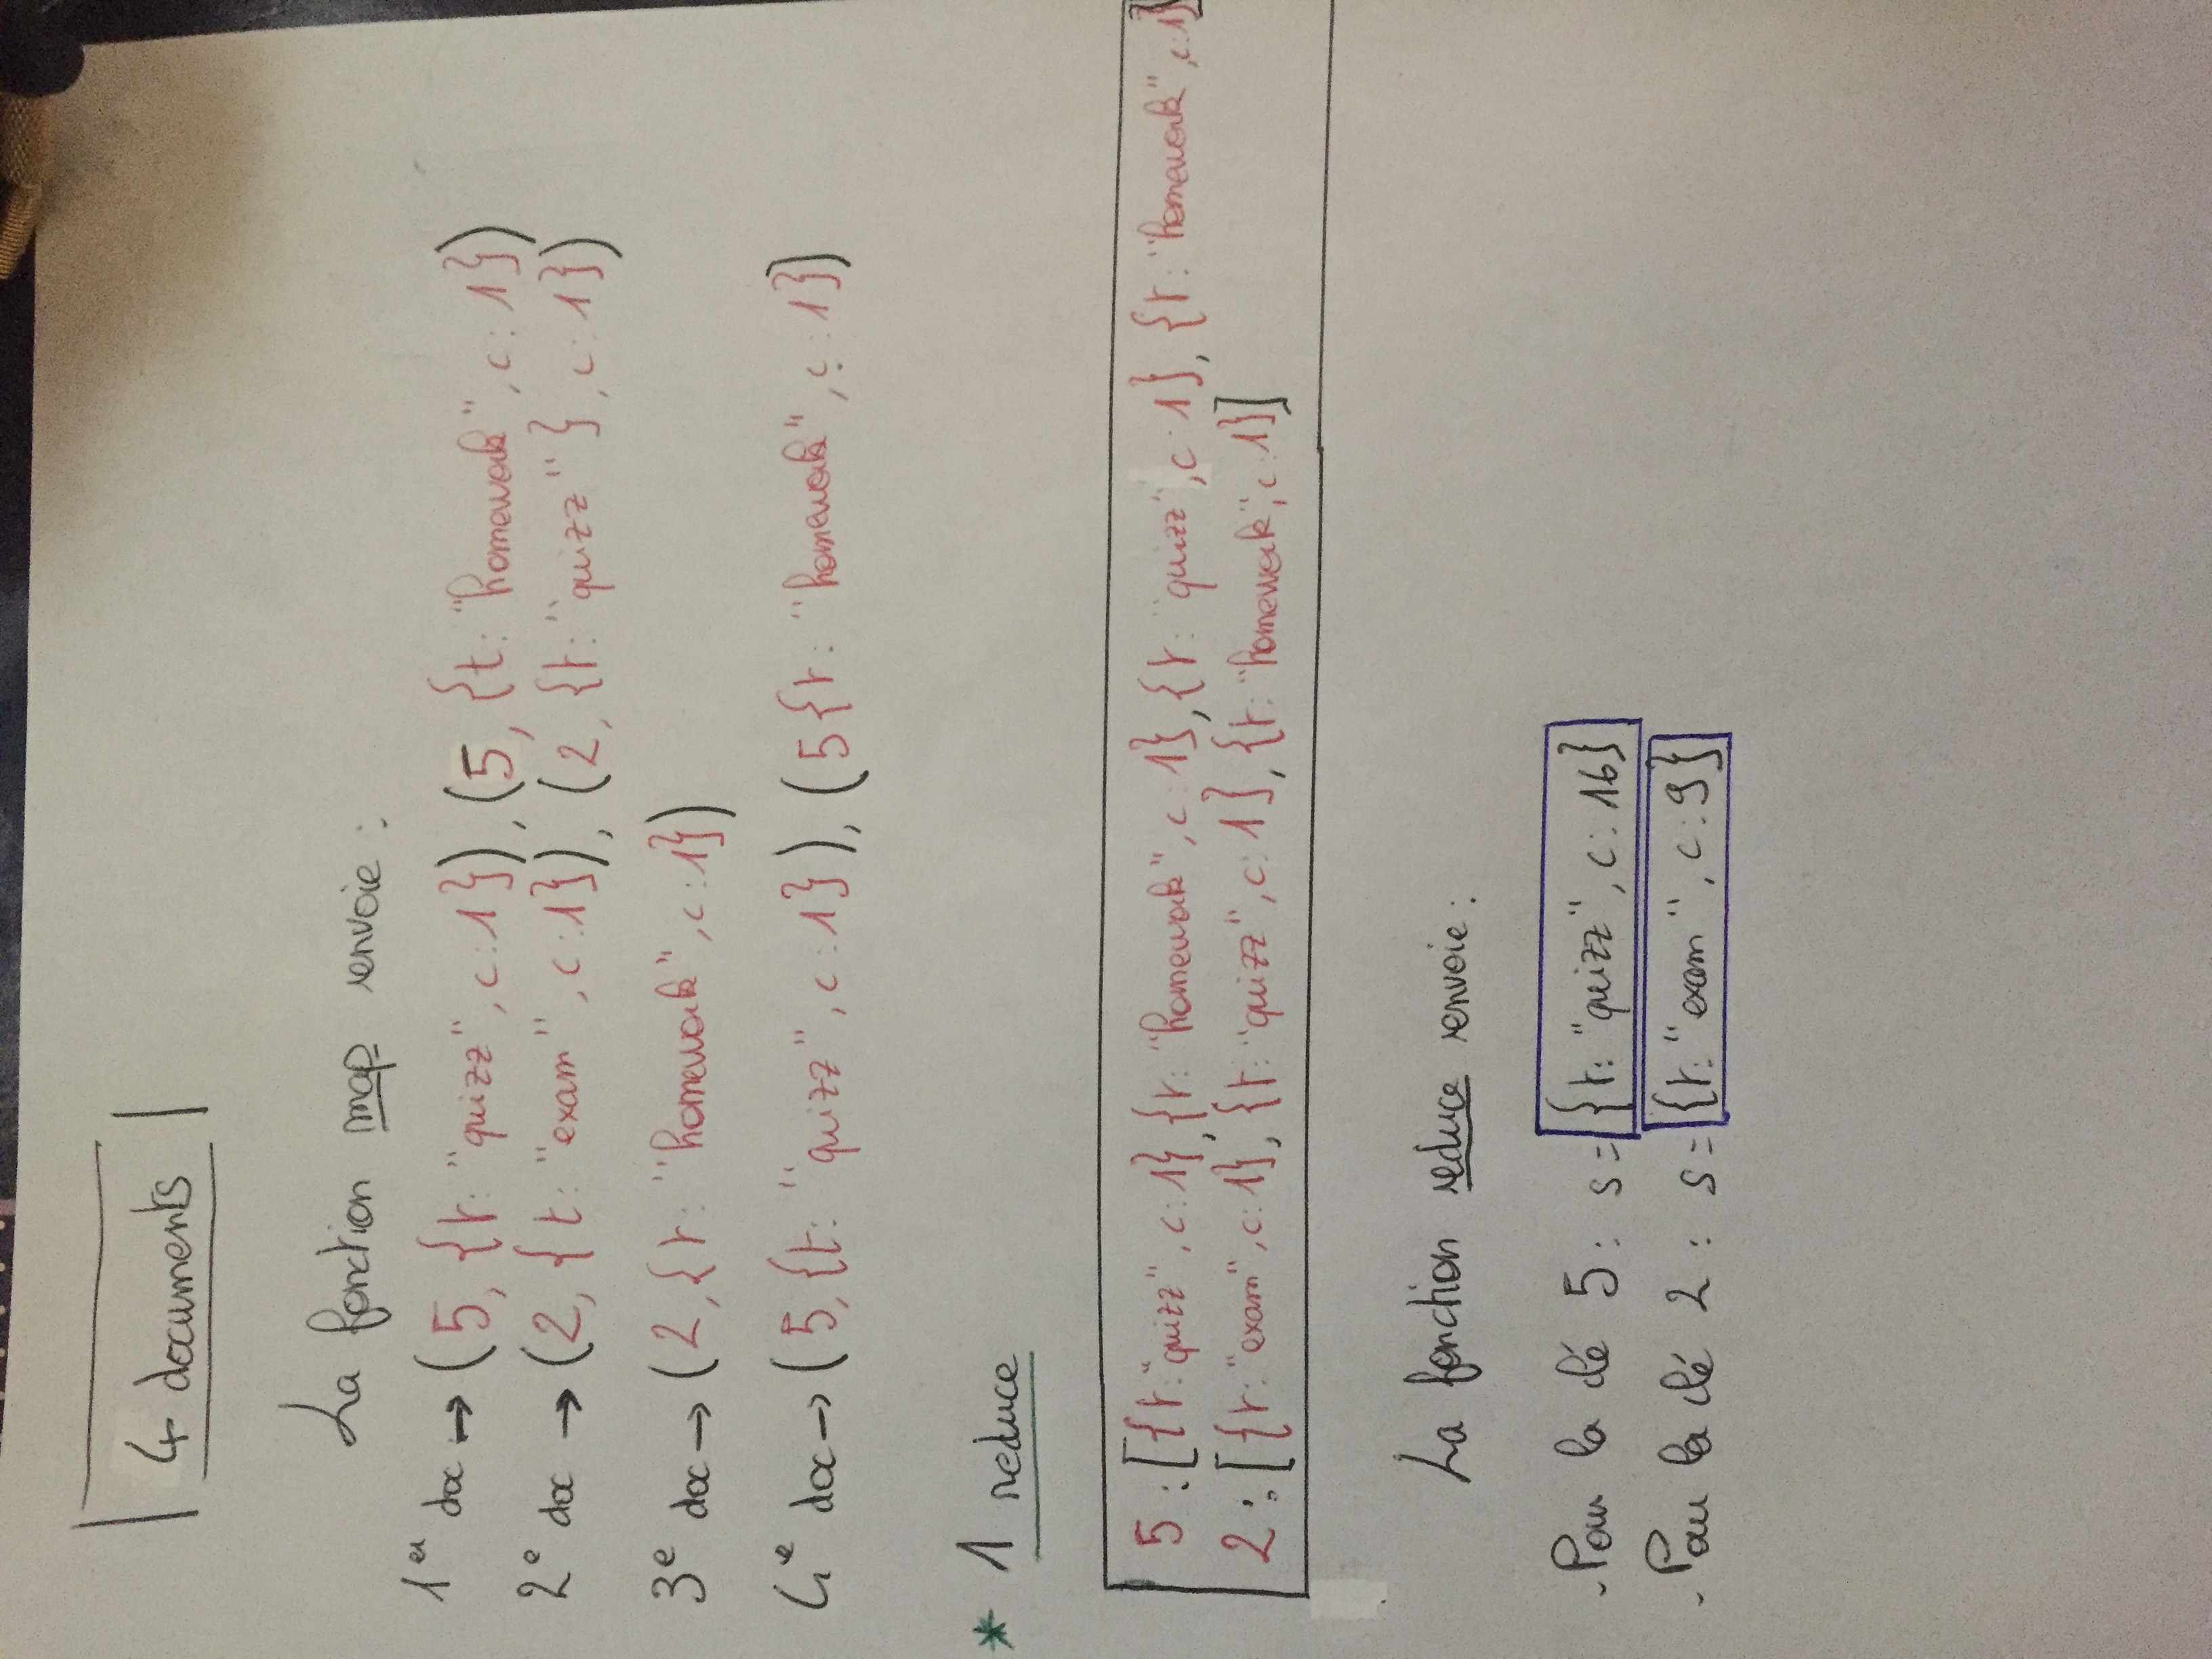 4 documents
La fonction map renvoie :
1er doc → (5, {t: "quizz", c:1}), (5, {t: "homework", c:1})
2e doc → (2, {t: "exam", c:1}), (2, {t: "quizz"}, c:1})
3e doc → (2, {t: "homework", c:1})
4e doc → (5, {t: "quizz", c:1}), (5{t: "homework", c:1})
* 1 reduce
5 : [{t:"quizz", c:1}, {t: "homework", c:1}, {t: "quizz", c:1}, {t: "homework", c:1}]
2 : [{t: "exam", c:1}, {t: "quizz", c:1}, {t: "homework", c:1}]
La fonction reduce renvoie :
- Pour la clé 5 : s = {t: "quizz", c:16}
- Pour la clé 2 : s = {t: "exam", c:9}